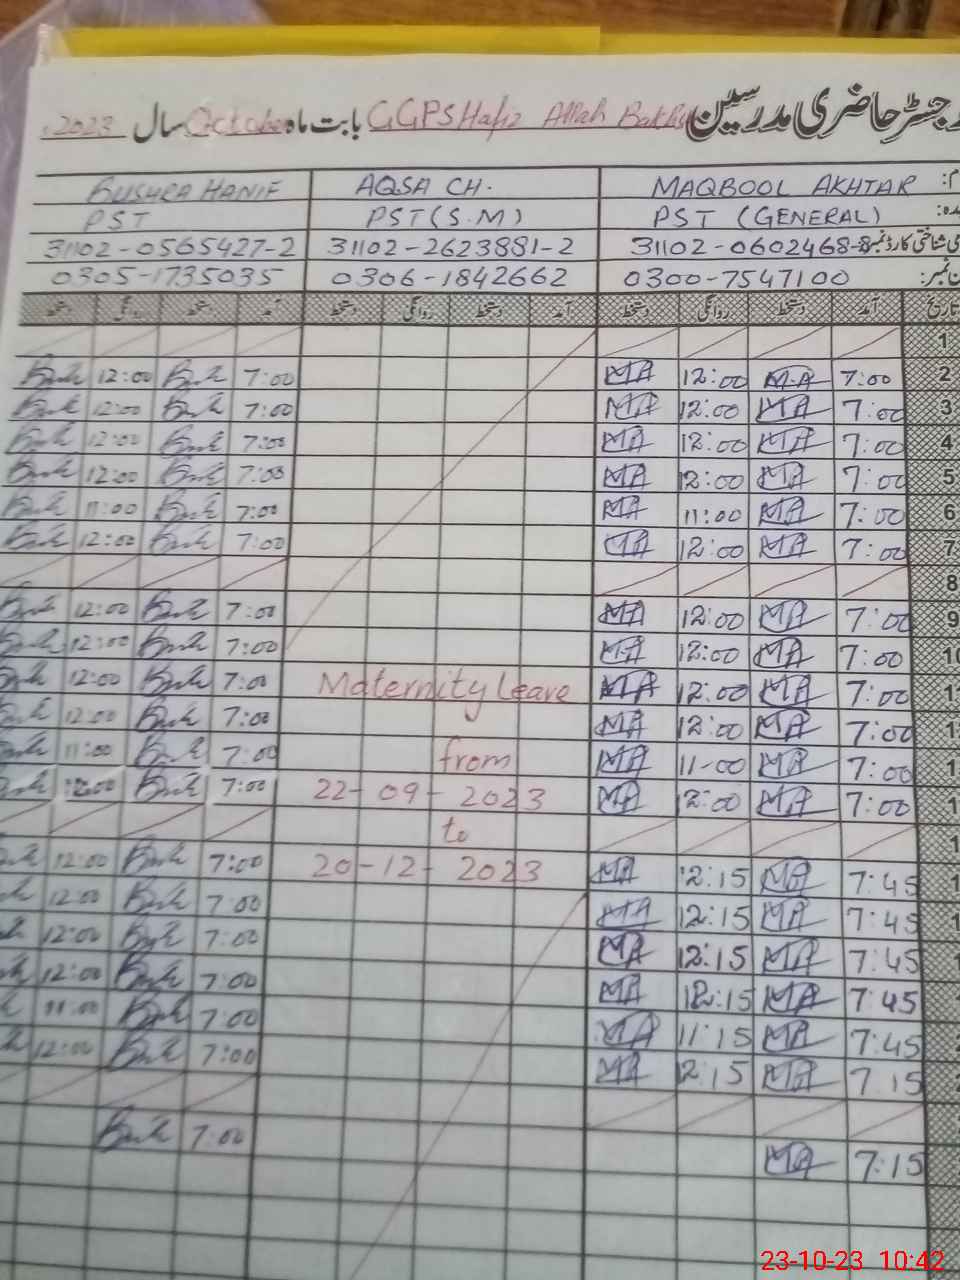 رجسٹر حاضری مدرسین GGPS Hafiz Allah Bakhsh بابت ماہ October سال 2023
MAQBOOL AKHTAR AQSA CH. BUSHRA HANIF
PST (GENERAL) PST (S.M) PST
شناختی کارڈ نمبر 31102-0602468-8 31102-2623881-2 31102-0565427-2
0300-7547100 0306-1842662 0305-1735035
تاریخ آمد دستخط روانگی دستخط آمد دستخط روانگی دستخط آمد دستخط روانگی دستخط
1
2 7:00 MA 12:00 MA 7:00 12:00
3 7:00 MA 12:00 MA 7:00 12:00
4 7:00 MA 12:00 MA 7:00 12:00
5 7:00 MA 12:00 MA 7:00 12:00
6 7:00 MA 11:00 MA 7:00 11:00
7 7:00 MA 12:00 MA 7:00 12:00
8
9 7:00 MA 12:00 MA 7:00 12:00
10 7:00 MA 12:00 MA 7:00 12:00
7:00 MA 12:00 MA Maternity Leave 7:00 12:00
7:00 MA 12:00 MA 7:00 12:00
7:00 MA 11-00 MA from 7:00 11:00
7:00 MA 12:00 MA 22-09-2023 7:00 12:00
to
7:45 MA 12:15 MA 20-12-2023 7:00 12:00
7:45 MA 12:15 MA 7:00 12:00
7:45 MA 12:15 MA 7:00 12:00
7:45 MA 12:15 MA 7:00 12:00
7:45 MA 11:15 MA 7:00 11:00
7:15 MA 12:15 MA 7:00 12:00
7:15 MA 7:00
23-10-23 10:42